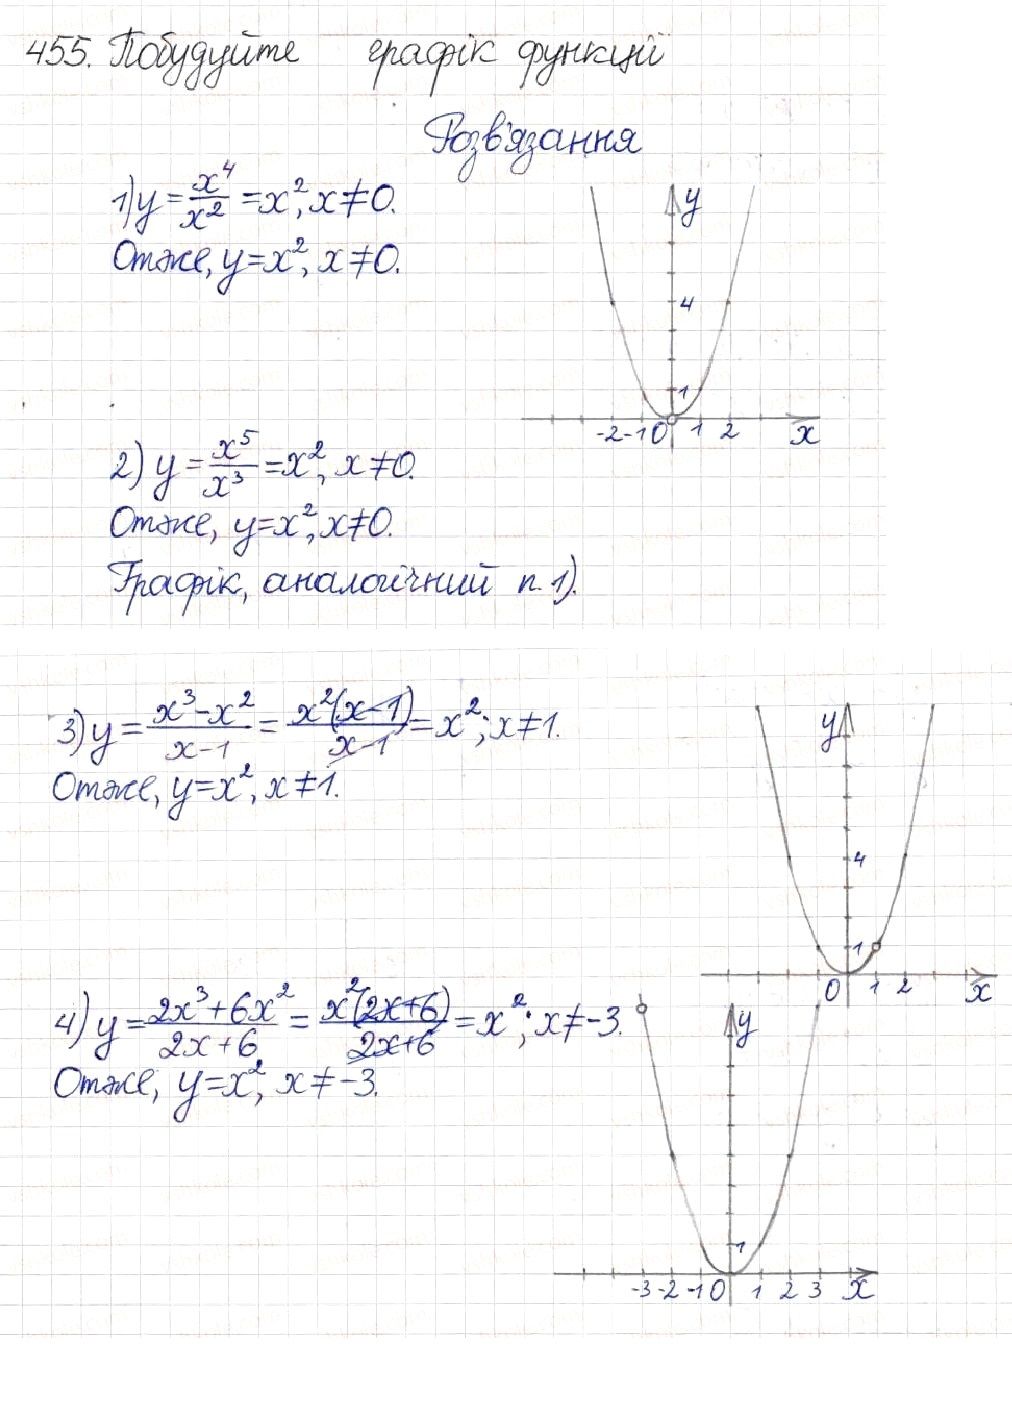 455. Побудуйте графік функції
Розв'язання
1) y = x⁴/x² = x², x ≠ 0.
Отже, y = x², x ≠ 0.
y
4
1
-2 -1 0 1 2 x
2) y = x⁵/x³ = x², x ≠ 0.
Отже, y = x², x ≠ 0.
Графік, аналогічний п. 1).
3) y = (x³ - x²)/(x - 1) = x²(x - 1)/(x - 1) = x²; x ≠ 1.
Отже, y = x², x ≠ 1.
y
4
1
0 1 2 x
4) y = (2x³ + 6x²)/(2x + 6) = x²(2x + 6)/(2x + 6) = x²; x ≠ -3.
Отже, y = x², x ≠ -3.
y
1
-3 -2 -1 0 1 2 3 x